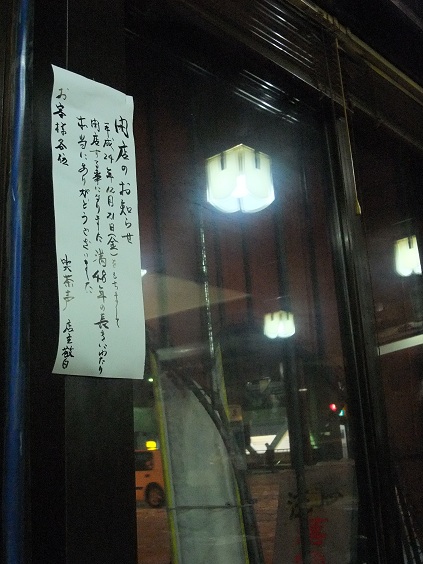 閉店のお知らせ
平成24年12月21日(金)をもちまして
閉店する事になりました 満48年の長きにわたり
本当にありがとうございました。
お客様各位
喫茶 店主敬白